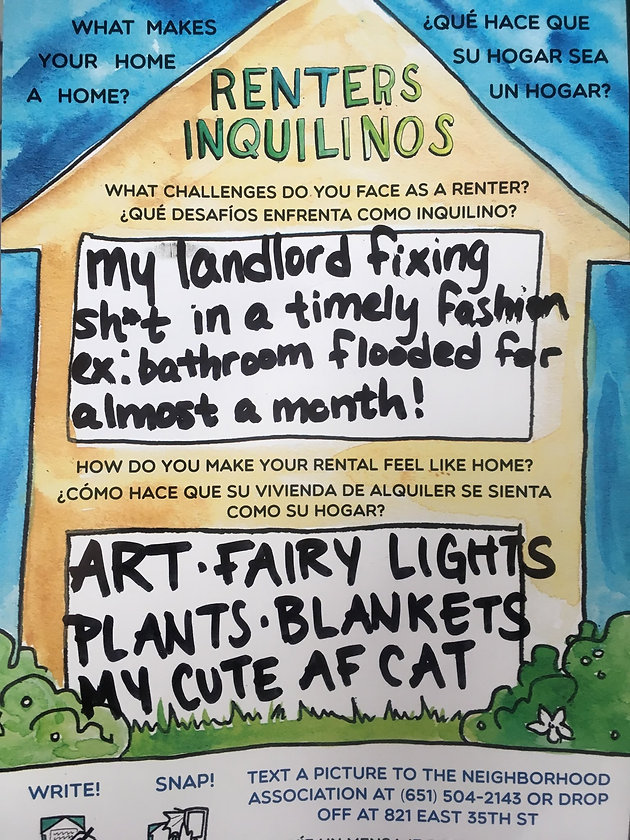 WHAT MAKES
YOUR HOME
A HOME?
¿QUÉ HACE QUE
SU HOGAR SEA
UN HOGAR?
RENTERS
INQUILINOS
WHAT CHALLENGES DO YOU FACE AS A RENTER?
¿QUÉ DESAFÍOS ENFRENTA COMO INQUILINO?
my landlord fixing
sh*t in a timely fashion
ex: bathroom flooded for
almost a month!
HOW DO YOU MAKE YOUR RENTAL FEEL LIKE HOME?
¿CÓMO HACE QUE SU VIVIENDA DE ALQUILER SE SIENTA
COMO SU HOGAR?
ART·FAIRY LIGHTS
PLANTS·BLANKETS
MY CUTE AF CAT
WRITE!
SNAP!
TEXT A PICTURE TO THE NEIGHBORHOOD
ASSOCIATION AT (651) 504-2143 OR DROP
OFF AT 821 EAST 35TH ST